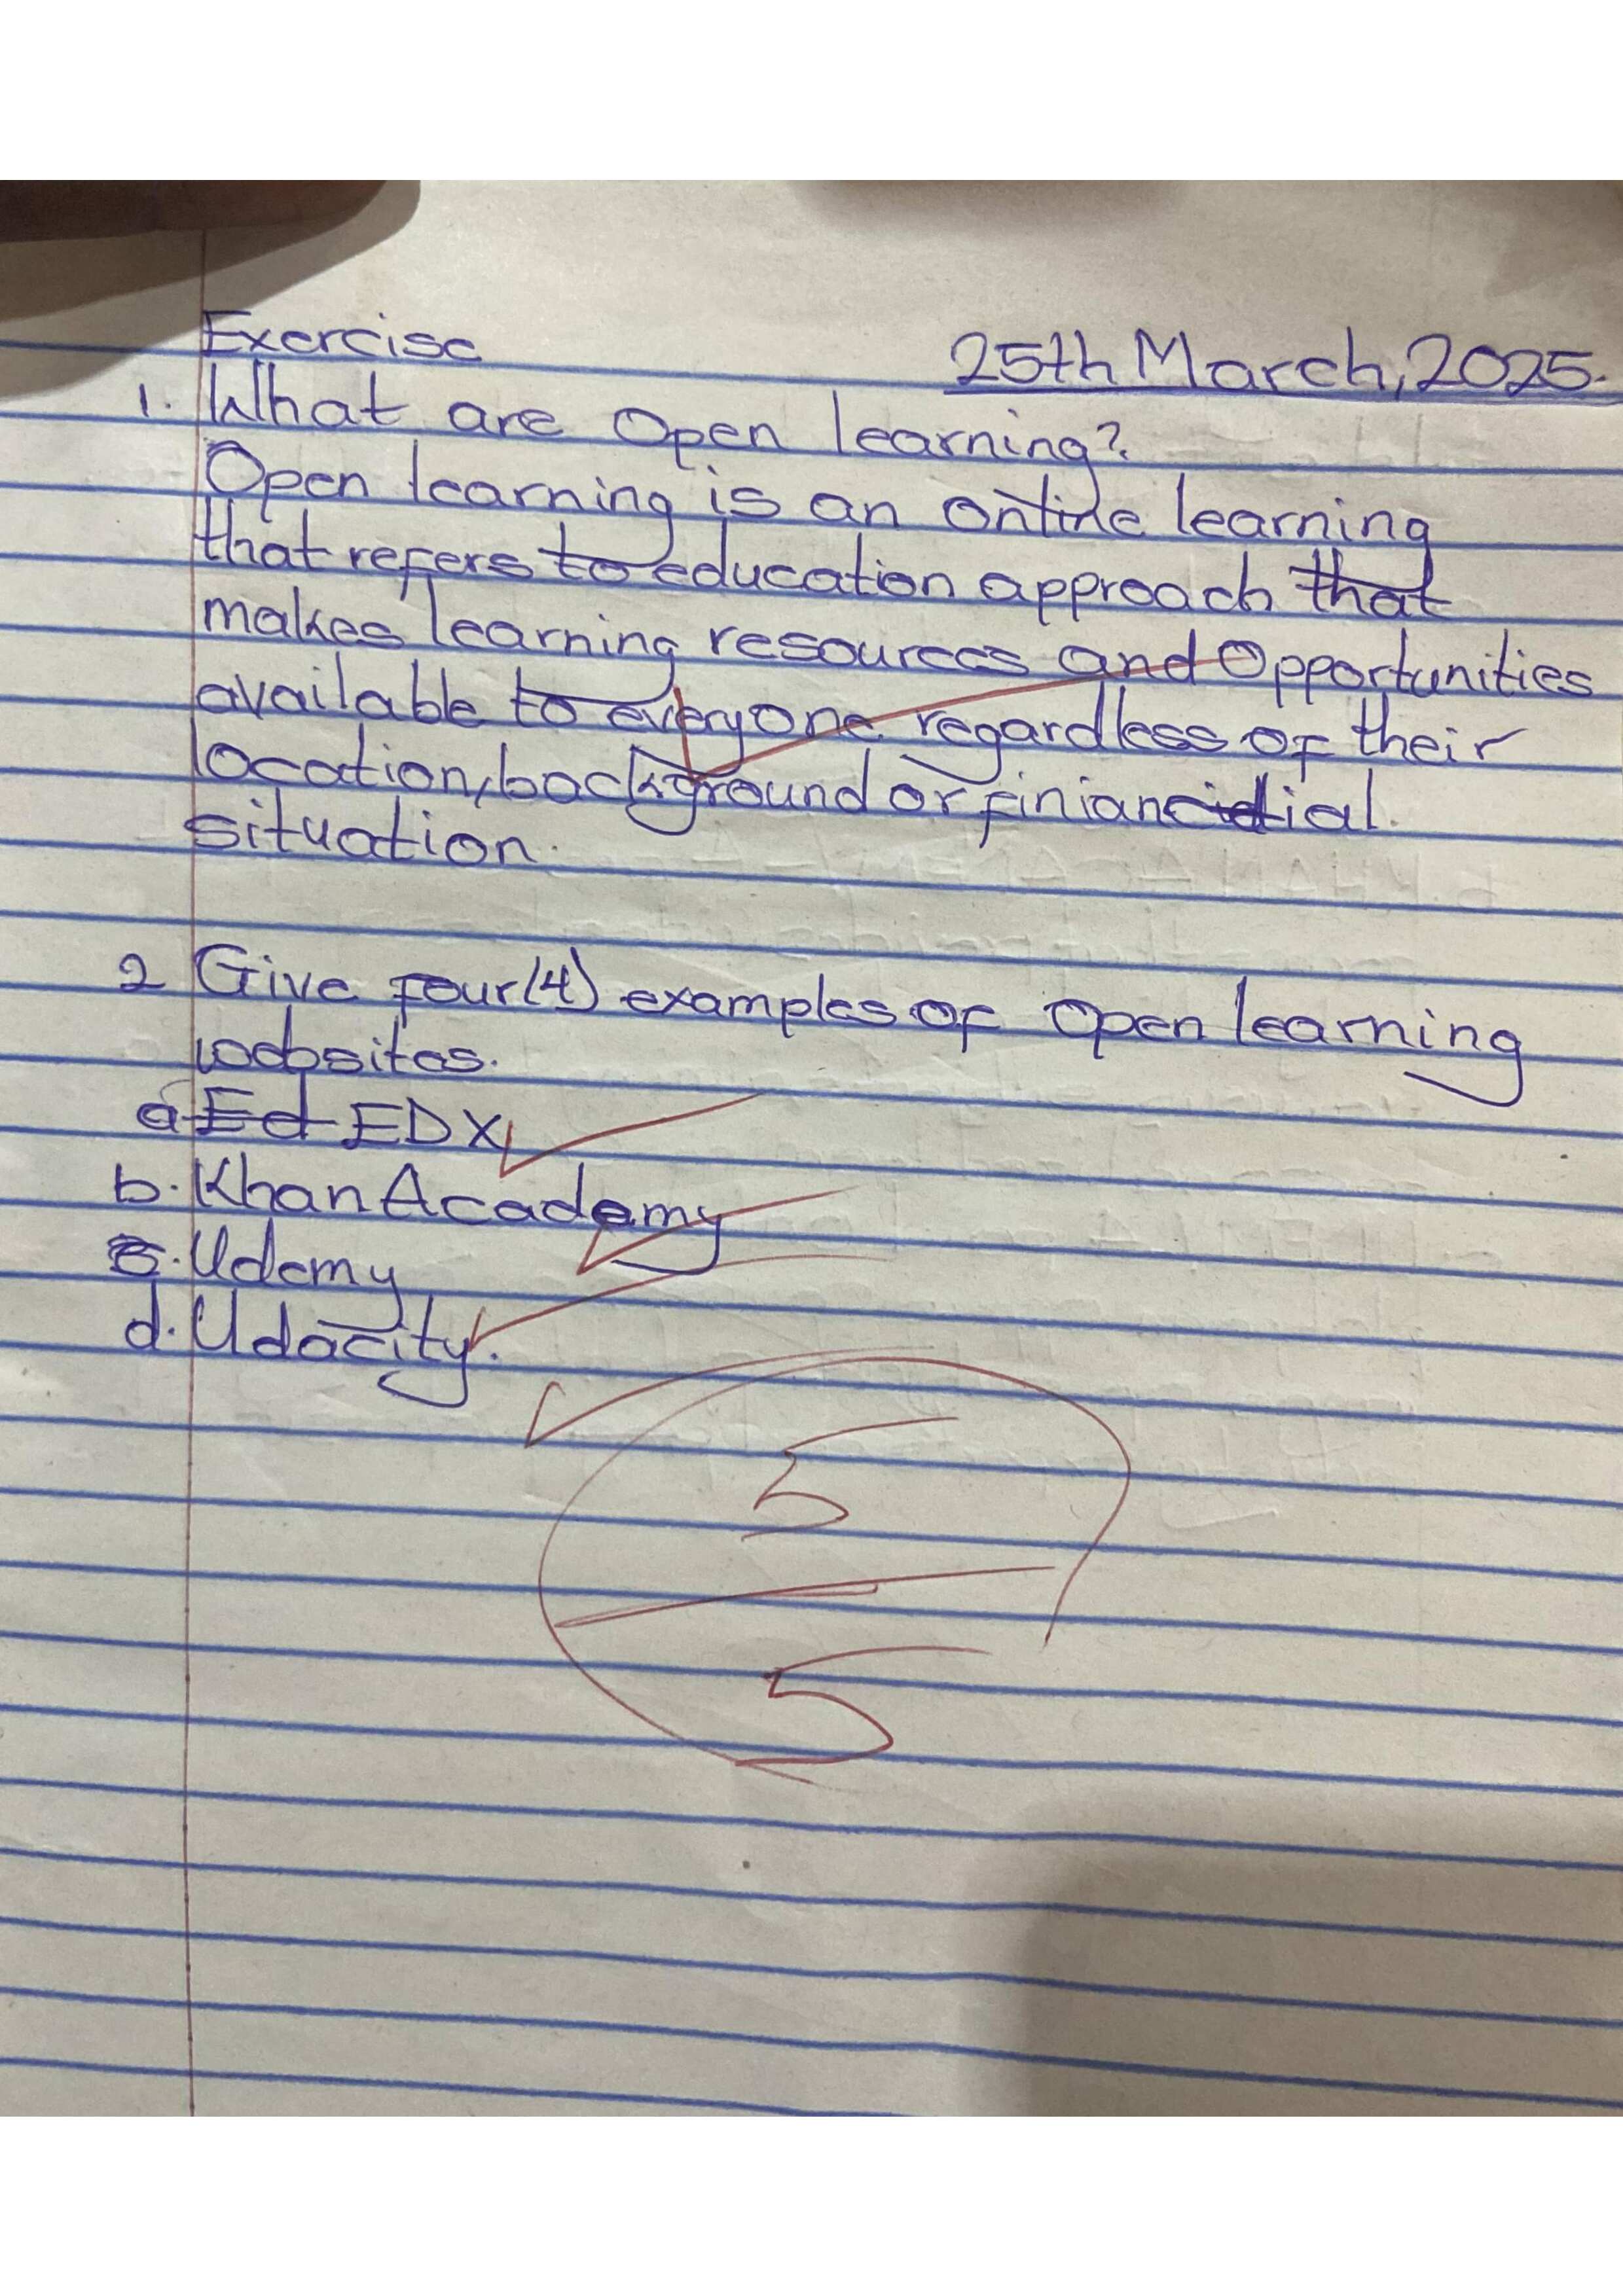 Exercise 25th March, 2025.
1. What are Open learning?
Open learning is an online learning
that refers to education approach that
makes learning resources and Opportunities
available to everyone regardless of their
location, background or finiancial.
situation.
2 Give four (4) examples of Open learning
websites.
a. Ed EDX
b. Khan Academy
c. Udemy
d. Udacity.
5
5